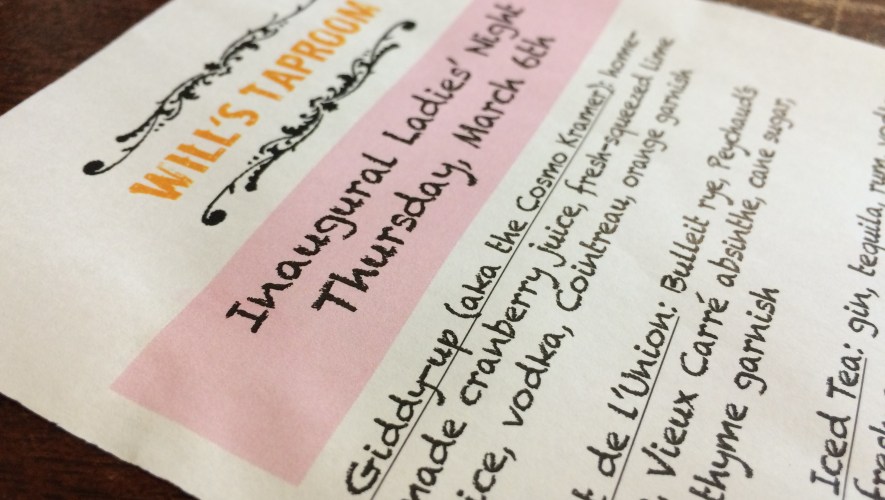 WILL'S TAPROOM
Inaugural Ladies' Night
Thursday, March 6th
Giddy-up (aka the Cosmo Kramer): home-
made cranberry juice, fresh-squeezed lime
vodka, Cointreau, orange garnish
de l'Union: Bulleit rye, Peychaud's
Vieux Carré absinthe, cane sugar,
thyme garnish
Iced Tea: gin, tequila, rum